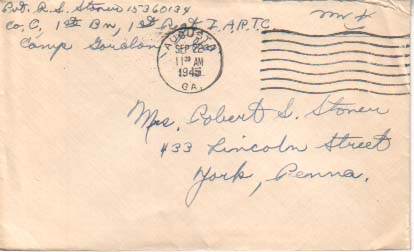 Pvt. R. S. Stoner 15360134
Co. C, 1st Bn, 1st Regt I.A.R.T.C.
Camp Gordon, Ga.
AUGUSTA
SEP 28
11 30 AM
1945
GA.
Mrs. Robert S. Stoner
433 Lincoln Street
York, Penna.